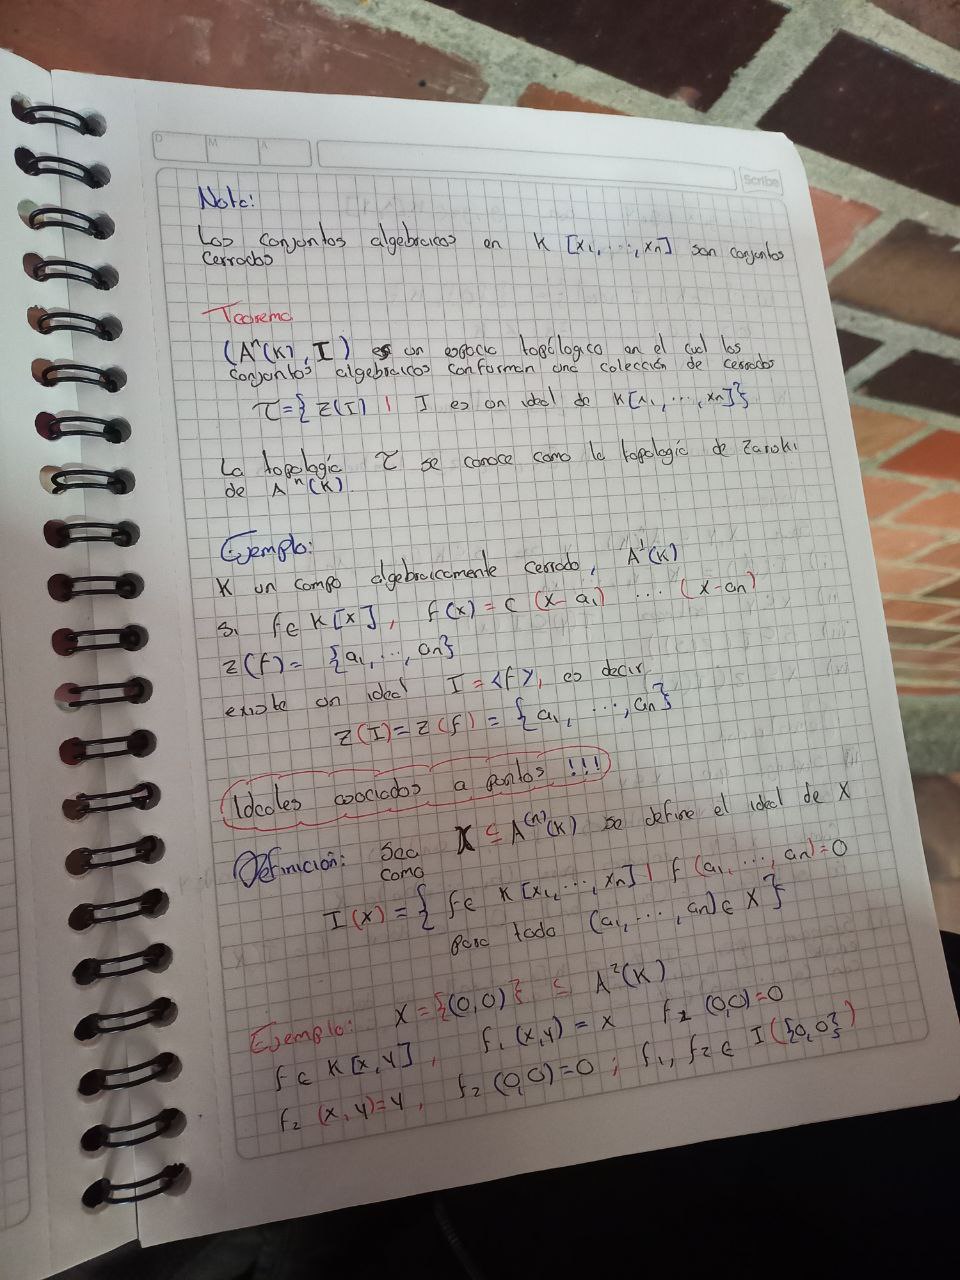 D M A
Scribe
Nota:
Los conjuntos algebraicos en K [x₁, ..., xₙ] son conjuntos
cerrados
Teorema
(Aⁿ(K), I) es un espacio topólogico en el cual los
conjuntos algebraicos conforman una colección de cerrados
τ = { Z(I) | I es un ideal de K[x₁, ..., xₙ]}
La topologia τ se conoce como la topologia de Zariski
de Aⁿ(K)
Ejemplo:
K un campo algebraicamente cerrado, A¹(K)
si f ∈ K[x], f(x) = c (x-a₁) ... (x-aₙ)
Z(f) = {a₁, ..., aₙ}
existe un ideal I = <f>, es decir
Z(I) = Z(f) = {a₁, ..., aₙ}
Ideales asociados a puntos !!!
Definición: Sea X ⊆ A⁽ⁿ⁾(K) se define el ideal de X
como
I(X) = { f ∈ K[x₁, ..., xₙ] | f(a₁, ..., aₙ) = 0
para todo (a₁, ..., aₙ) ∈ X }
Ejemplo: X = {(0,0)} ⊆ A²(K)
f ∈ K[x,y], f₁(x,y) = x f₂(0,0) = 0
f₂(x,y) = y, f₂(0,0) = 0; f₁, f₂ ∈ I({0,0})